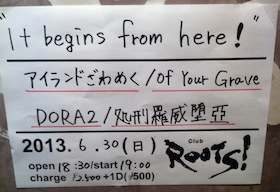 "It begins from here!"
アイランドざわめく/Of Your Grave
DORA2/処刑羅威堕亞
2013.6.30(日)
open 18:30/start 19:00
charge ¥2,500+1D(¥500)
Club
ROOTS!